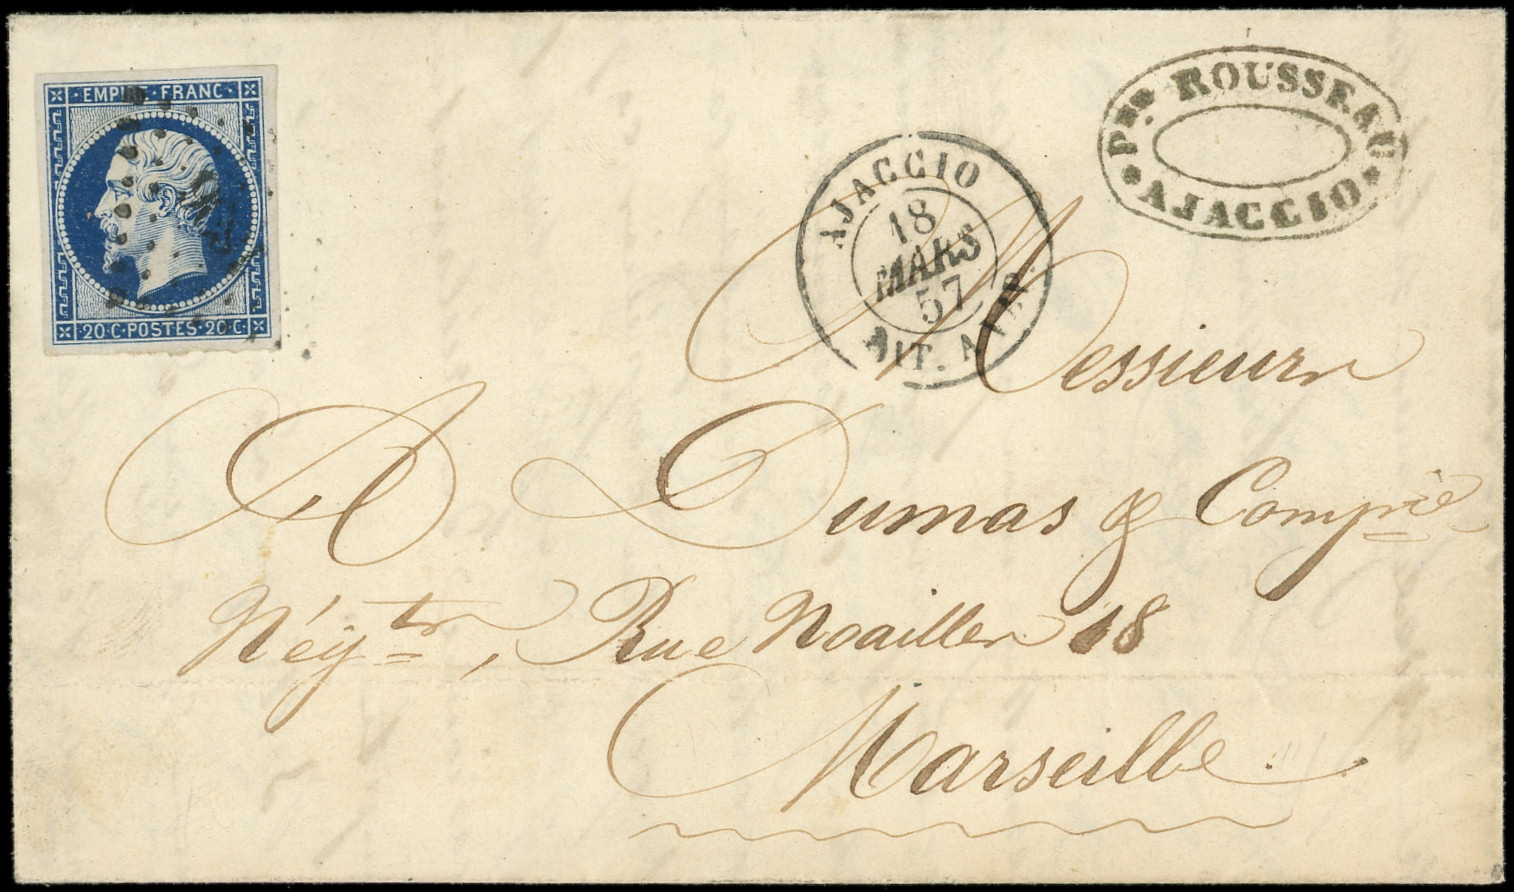 EMPIRE FRANC
20 C · POSTES · 20 C
AJACCIO
18
MARS
57
BAT. A VAP.
Pre ROUSSEAU
* AJACCIO *
Messieurs
A Dumas & Compie
Négts, Rue Noailles 18
Marseille.